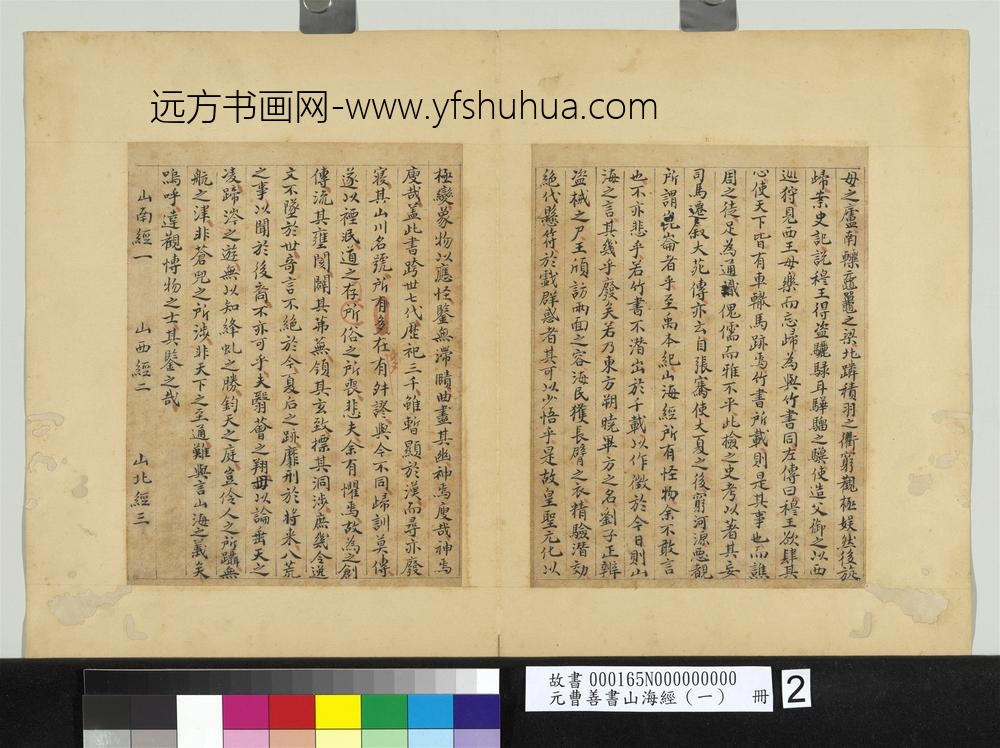 远方书画网-www.yfshuhua.com
母之廬南轢黿鼉之梁北躡積羽之衢窮觀極娛然後旋
歸案史記說穆王得盜驪騄耳驊騮之驥使造父御之以西
巡狩見西王母樂而忘歸為與竹書同左傳曰穆王欲肆其
心使天下皆有車轍馬跡焉竹書所載則是其事也而譙
周之徒足為通識傀儒而雅不平此檢之史考以著其妄
司馬遷叙大菀傳亦云自張騫使大夏之後窮河源惡覩
所謂崑崙者乎至禹本紀山海經所有怪物余不敢言
也不亦悲乎若竹書不潛出於千載以作徵於今日則山
海之言其幾乎廢矣若乃東方朔曉畢方之名劉子正辨
盜械之尸王頎訪兩面之容海民獲長臂之衣精驗潛効
絕代懸符於戲群惑者其可以少悟乎是故皇聖元化以
極變象物以應怪鑒無滯賾曲盡其幽神焉廋哉神焉
廋哉蓋此書跨世七代歷祀三千雖暫顯於漢而尋亦廢
寢其山川名號所有多在有舛謬與今不同歸訓莫傳
遂以禋泯道之存所俗之所喪悲夫余有懼焉故為之創
傳流其壅閡闢其茀蕪領其玄致摽其洞涉庶幾令逸
文不墜於世奇言不絕於今夏后之跡靡刊於將來八荒
之事以聞於後裔不亦可乎夫翳薈之翔毋以論垂天之
凌蹄涔之遊無以知絳虬之勝鈞天之庭豈伶人之所躡無
航之津非蒼兕之所涉非天下之至通難與言山海之義矣
嗚呼達觀博物之士其鑒之哉
山南經一 山西經二 山北經三
故書000165N000000000
元曹善書山海經（一） 冊 2